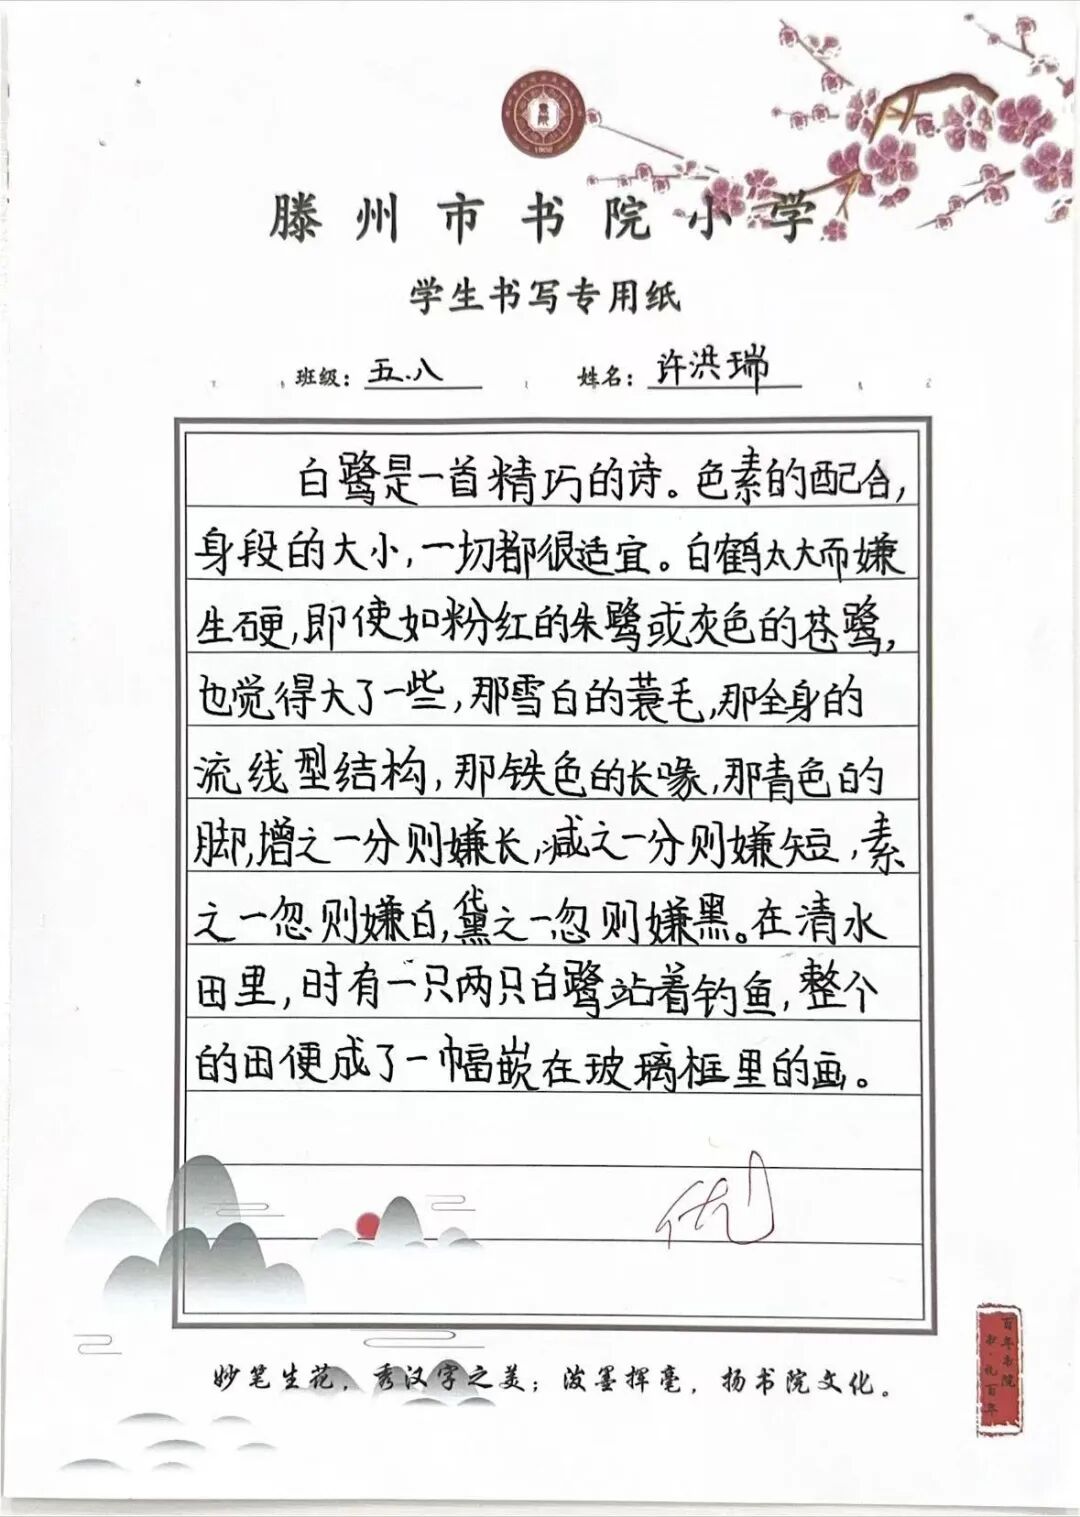 滕州市书院小学
学生书写专用纸
班级：五.八 姓名：许洪瑞
白鹭是一首精巧的诗。色素的配合，
身段的大小，一切都很适宜。白鹤太大而嫌
生硬，即使如粉红的朱鹭或灰色的苍鹭，
也觉得大了一些，那雪白的蓑毛，那全身的
流线型结构，那铁色的长喙，那青色的
脚，增之一分则嫌长，减之一分则嫌短，素
之一忽则嫌白，黛之一忽则嫌黑。在清水
田里，时有一只两只白鹭站着钓鱼，整个
的田便成了一幅嵌在玻璃框里的画。
优
妙笔生花，秀汉字之美；泼墨挥毫，扬书院文化。
百年书院
书·礼百年